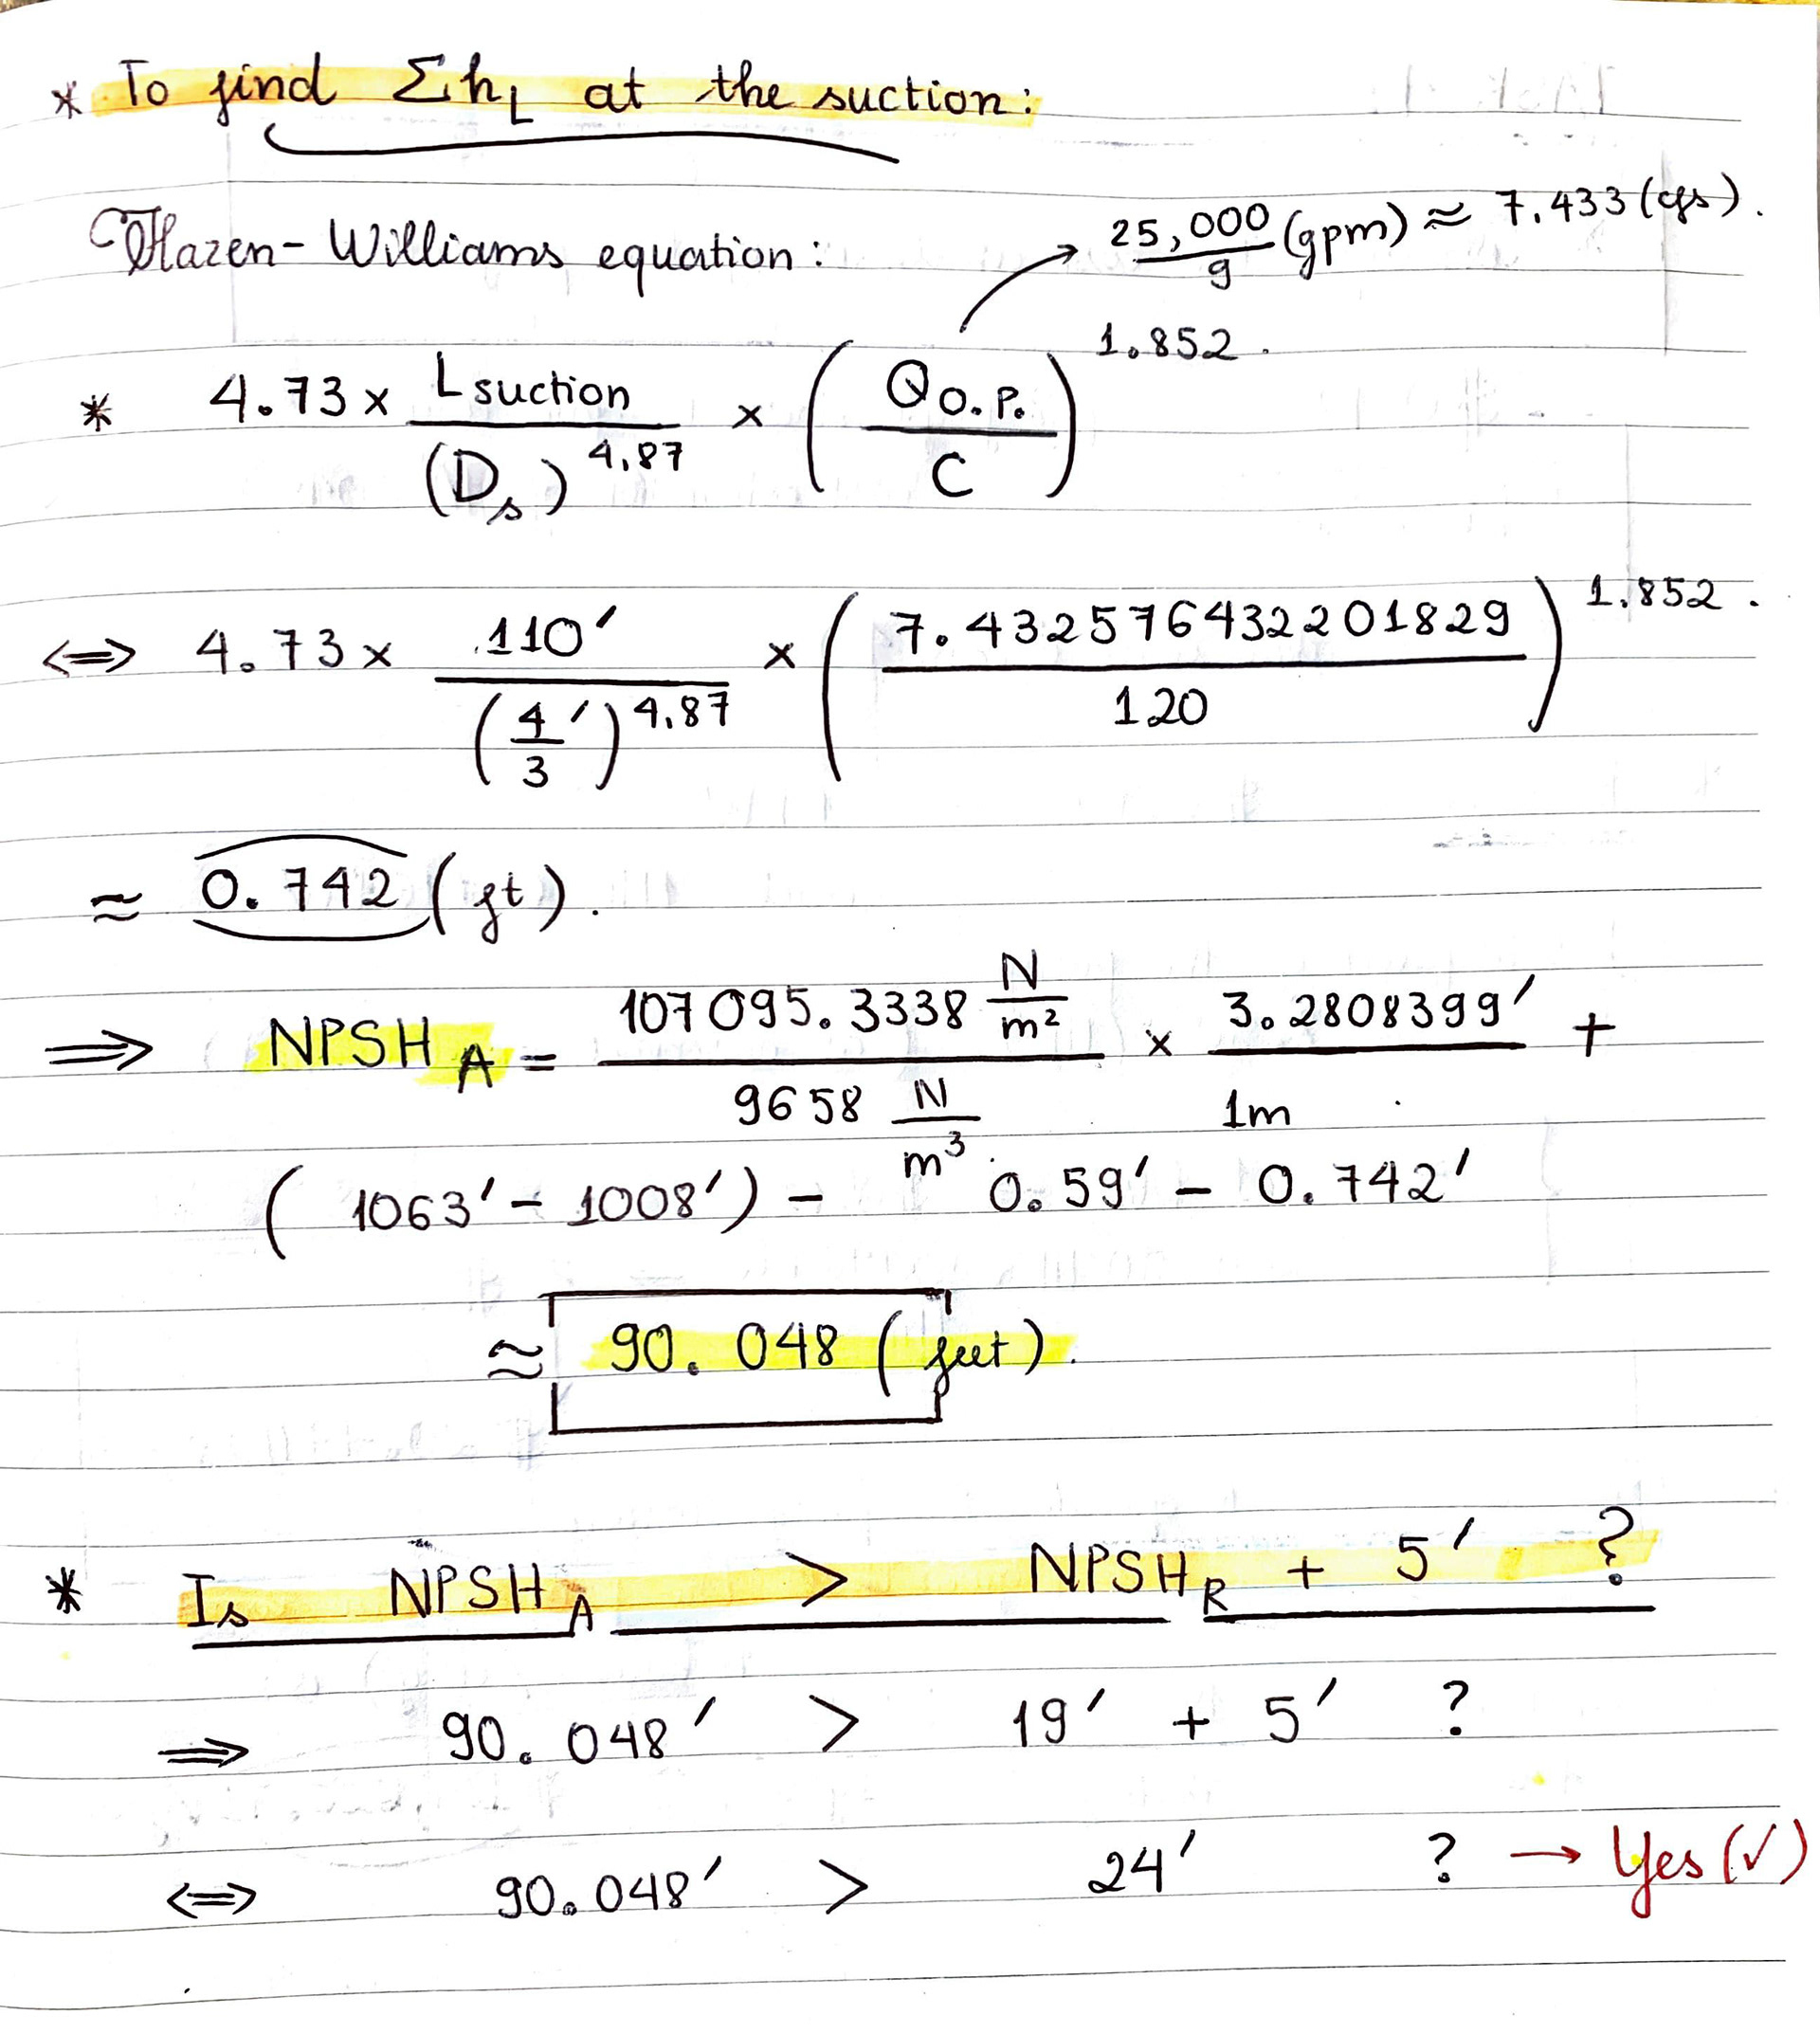 * To find Σh_L at the suction:
Hazen-Williams equation:
25,000/9 (gpm) ≈ 7.433 (cfs).
* 4.73 x L suction/(D_s)^4.87 x (Q_O.P./C)^1.852.
⇔ 4.73 x 110'/(4/3')^4.87 x (7.432576432201829/120)^1.852.
≈ 0.742 (ft).
⇒ NPSH_A = 107095.3338 N/m²/9658 N/m³ x 3.2808399'/1m +
(1063' - 1008') - 0.59' - 0.742'
≈ 90.048 (feet).
* Is NPSH_A > NPSH_R + 5' ?
⇒ 90.048' > 19' + 5' ?
⇔ 90.048' > 24' ? → Yes (✓)